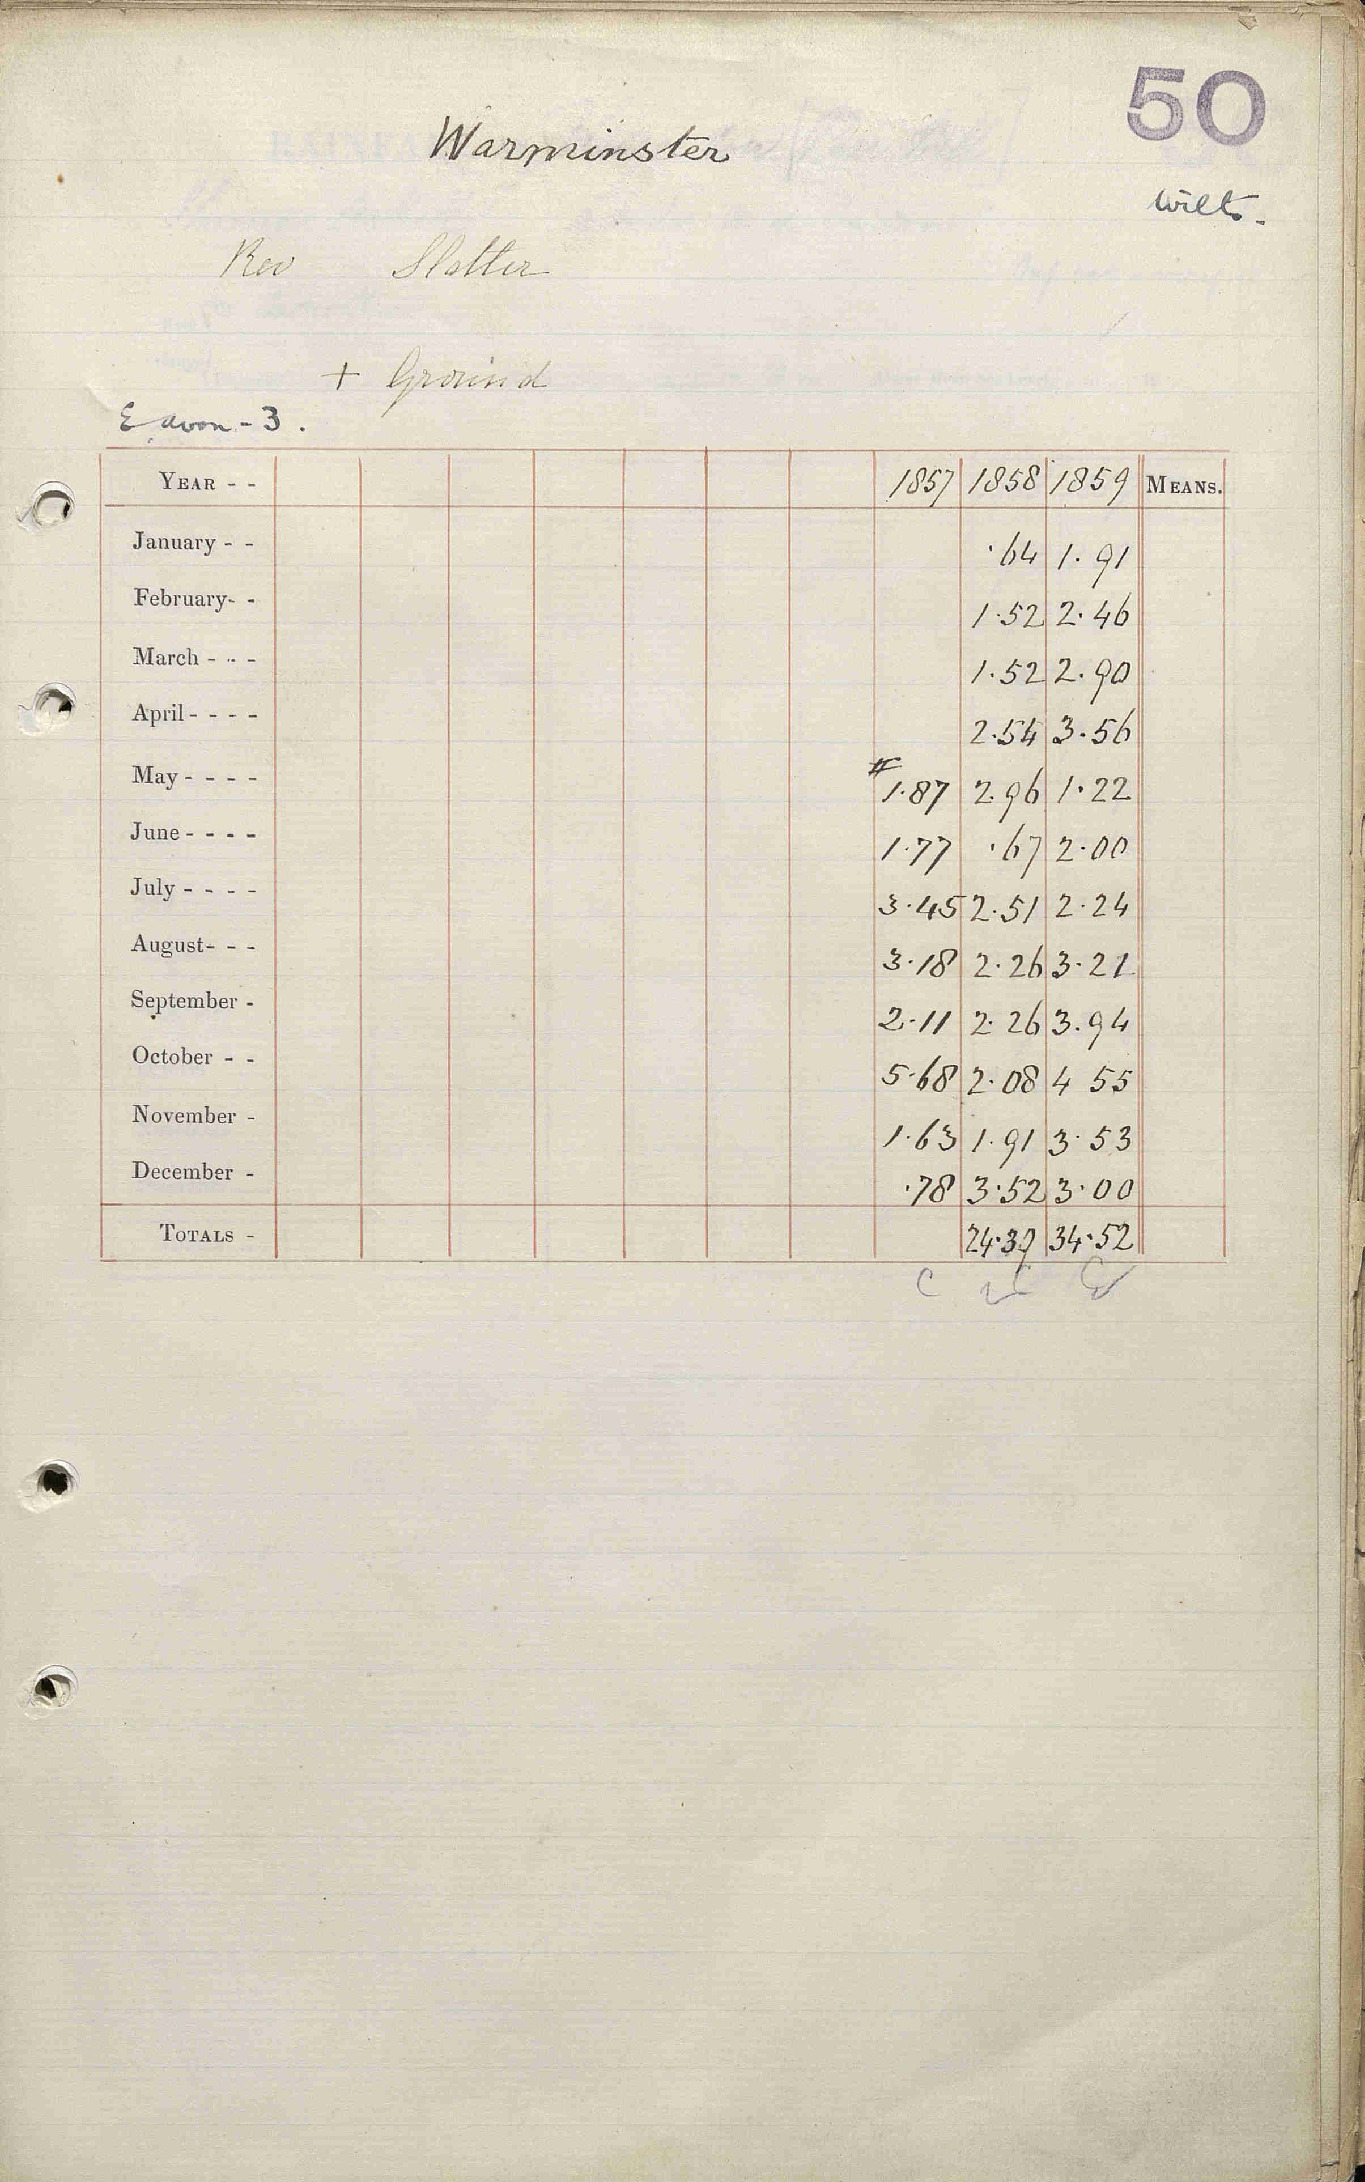 50
Warminster
Wilts.
Rev Slatter
+ Ground
E avon - 3.
YEAR - - 1857 1858 1859 MEANS.
January - - ·64 1·91
February- - 1·52 2·46
March - - - 1·52 2·90
April - - - - 2·54 3·56
May - - - - #1·87 2·96 1·22
June - - - - 1·77 ·67 2·00
July - - - - 3·45 2·51 2·24
August- - - 3·18 2·26 3·21
September - 2·11 2·26 3·94
October - - 5·68 2·08 4 55
November - 1·63 1·91 3·53
December - ·78 3·52 3·00
TOTALS - 24·39 34·52
C